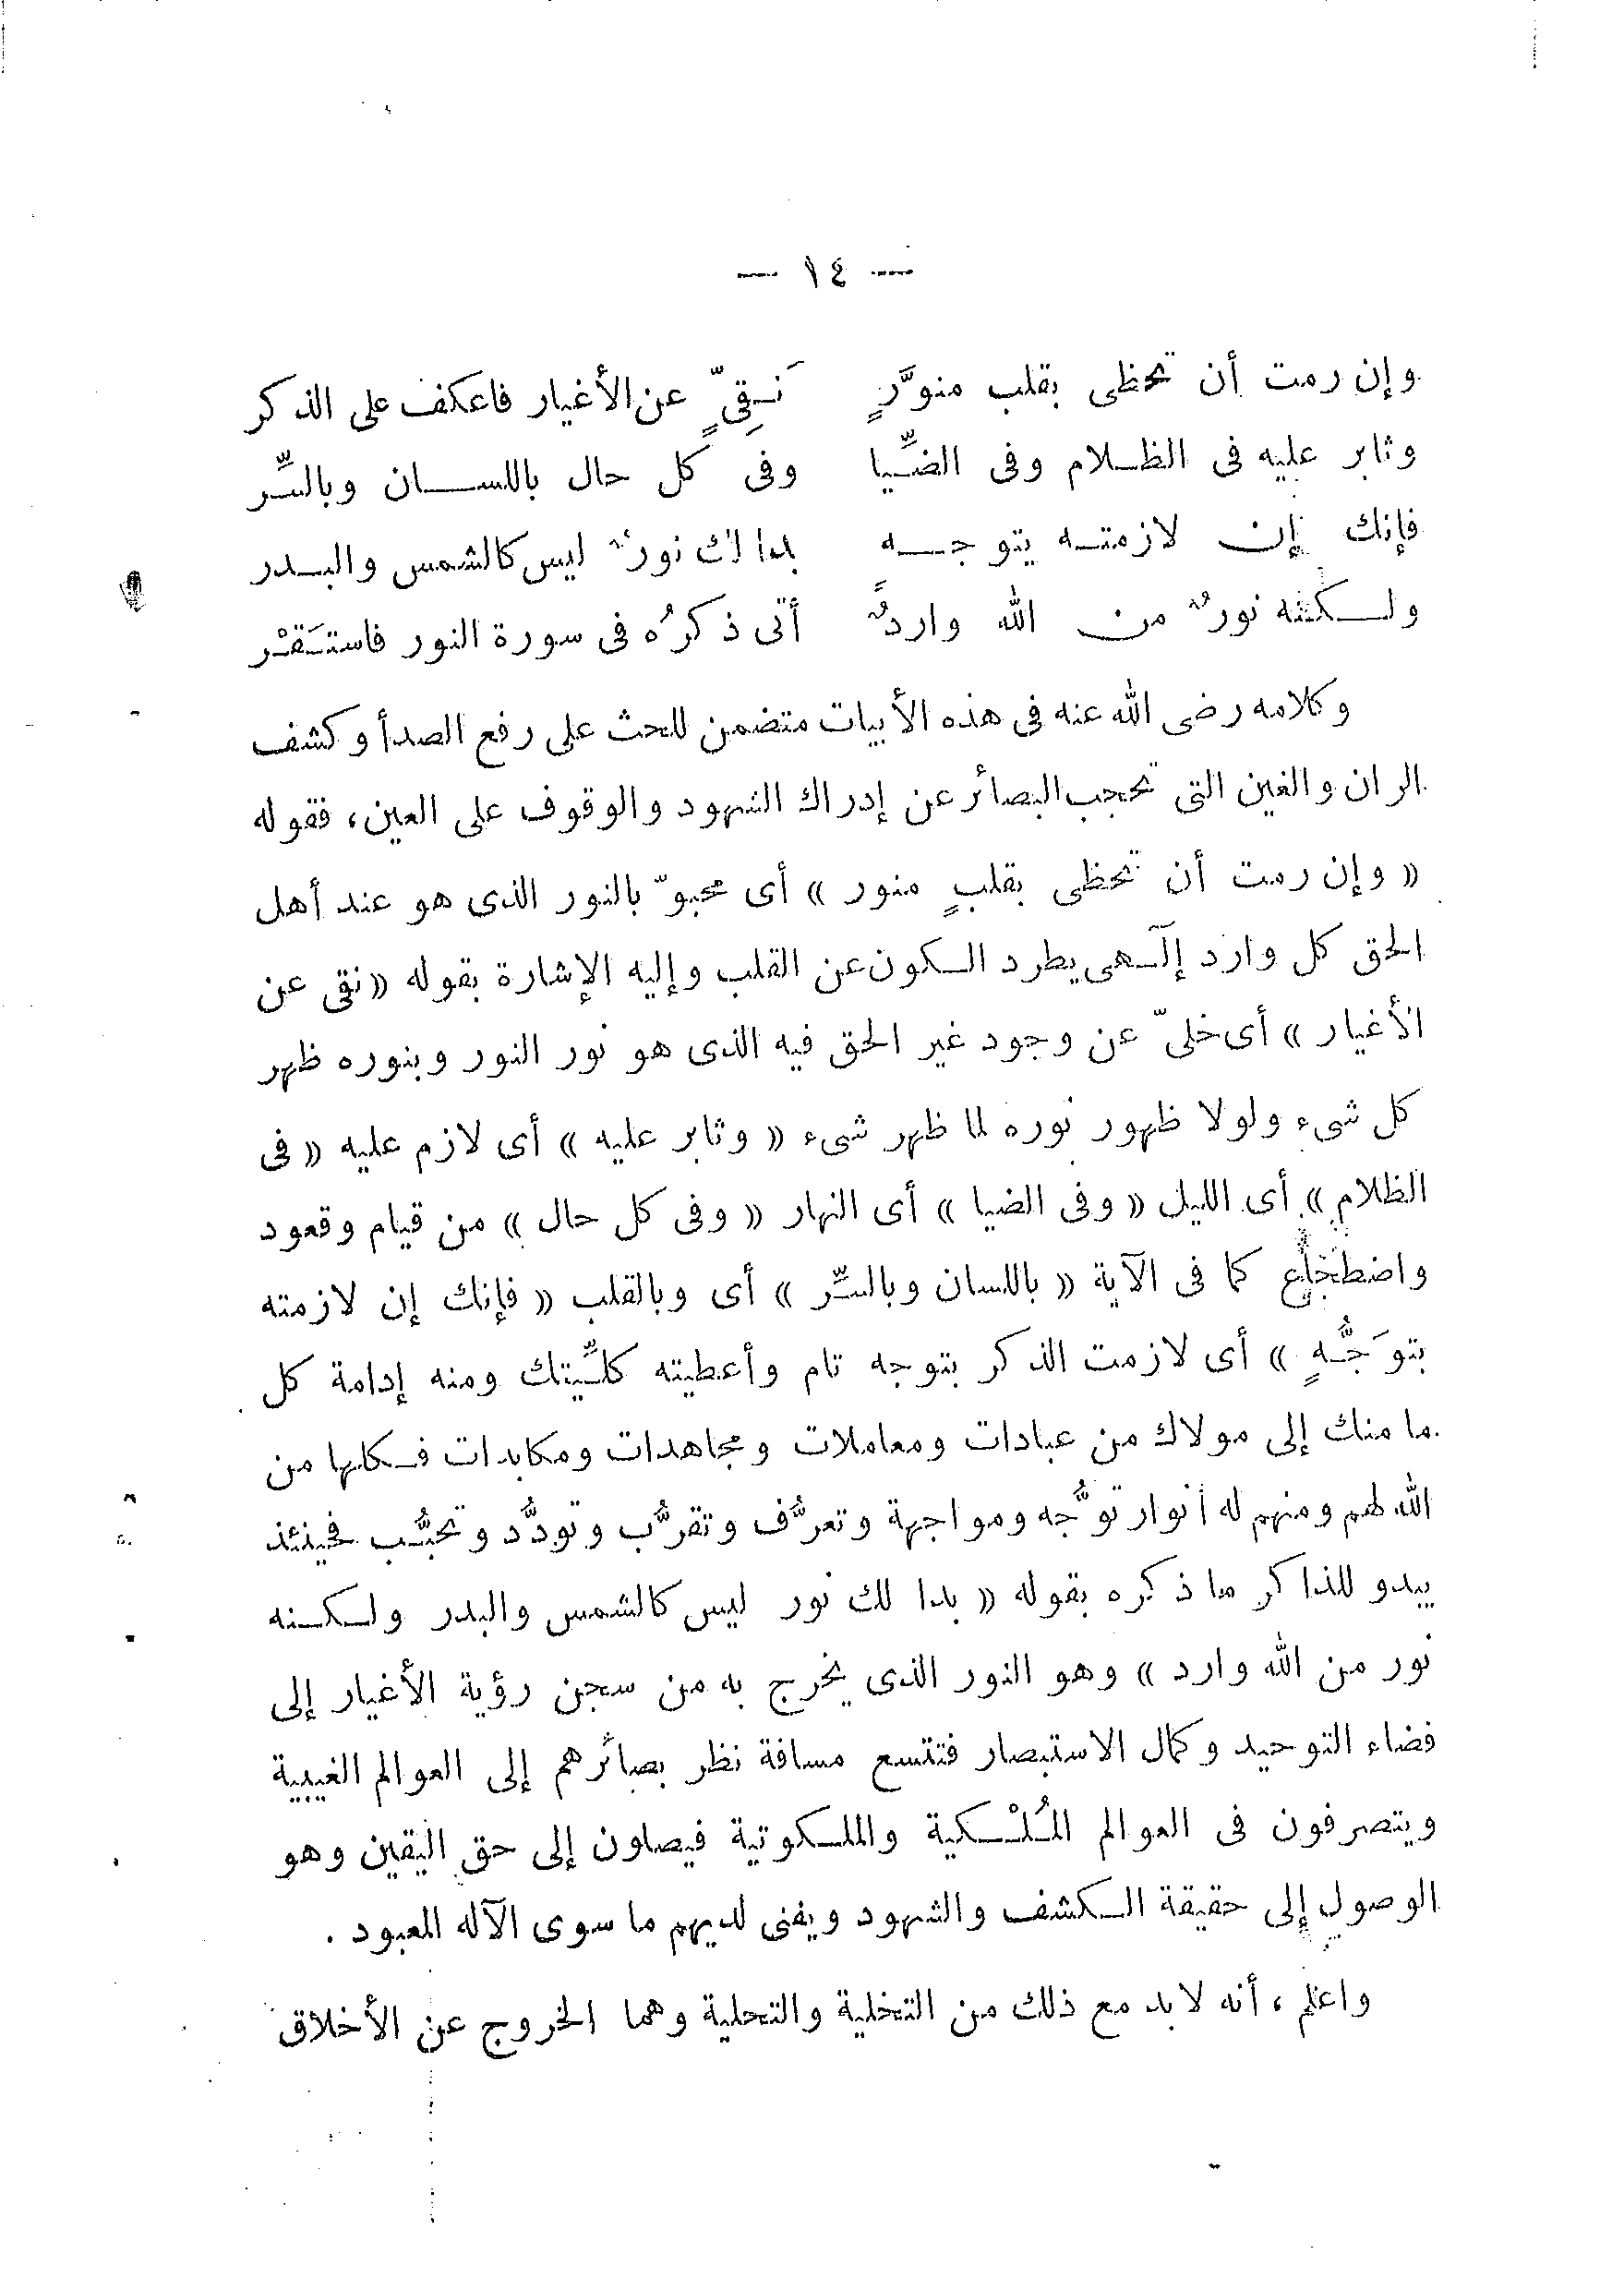 — ١٤ —
وإن رمت أن تحظى بقلب منوَّرٍ نَـقِىٍّ عن الأغيار فاعكف على الذكر
وثابر عليه فى الظـلام وفى الضِّـيا وفى كل حال باللســـان وبالسِّر
فإنك إن لازمتـه بتوجـــه بدا لك نورٌ ليس كالشمس والبــدر
ولــكنَّه نورٌ من الله واردٌ أتى ذكرُه فى سورة النور فاستَقْـر
وكلامه رضى الله عنه فى هذه الأبيات متضمن للحث على رفع الصدأ وكشف
الران والغين التى تحجب البصائر عن إدراك الشهود والوقوف على العين، فقوله
« وإن رمت أن تحظى بقلبٍ منور » أى محبوّ بالنور الذى هو عند أهل
الحق كل وارد إلـٓـهى يطرد الـكون عن القلب وإليه الإشارة بقوله « نقى عن
الأغيار » أى خلىّ عن وجود غير الحق فيه الذى هو نور النور وبنوره ظهر
كل شىء ولولا ظهور نوره لما ظهر شىء « وثابر عليه » أى لازم عليه « فى
الظلام » أى الليل « وفى الضيا » أى النهار « وفى كل حال » من قيام وقعود
واضطجاع كما فى الآية « باللسان وبالسِّر » أى وبالقلب « فإنك إن لازمته
بتوَجُّـهٍ » أى لازمت الذكر بتوجه تام وأعطيته كلِّـيتك ومنه إدامة كل
ما منك إلى مولاك من عبادات ومعاملات ومجاهدات ومكابدات فـكلها من
الله لهم ومنهم له أنوار توجُّه ومواجهة وتعرُّف وتقرُّب وتودُّد وتحبُّب فحينئذ
يبدو للذاكر ما ذكره بقوله « بدا لك نور ليس كالشمس والبدر ولـكـنه
نور من الله وارد » وهو النور الذى يخرج به من سجن رؤية الأغيار إلى
فضاء التوحيد وكمال الاستبصار فتتسع مسافة نظر بصائرهم إلى العوالم الغيبية
ويتصرفون فى العوالم المُـلْـكية والملـكوتية فيصلون إلى حق اليقين وهو
الوصول إلى حقيقة الـكشف والشهود ويفنى لديهم ما سوى الآله المعبود .
واعلم ، أنه لا بد مع ذلك من التخلية والتحلية وهما الخروج عن الأخلاق